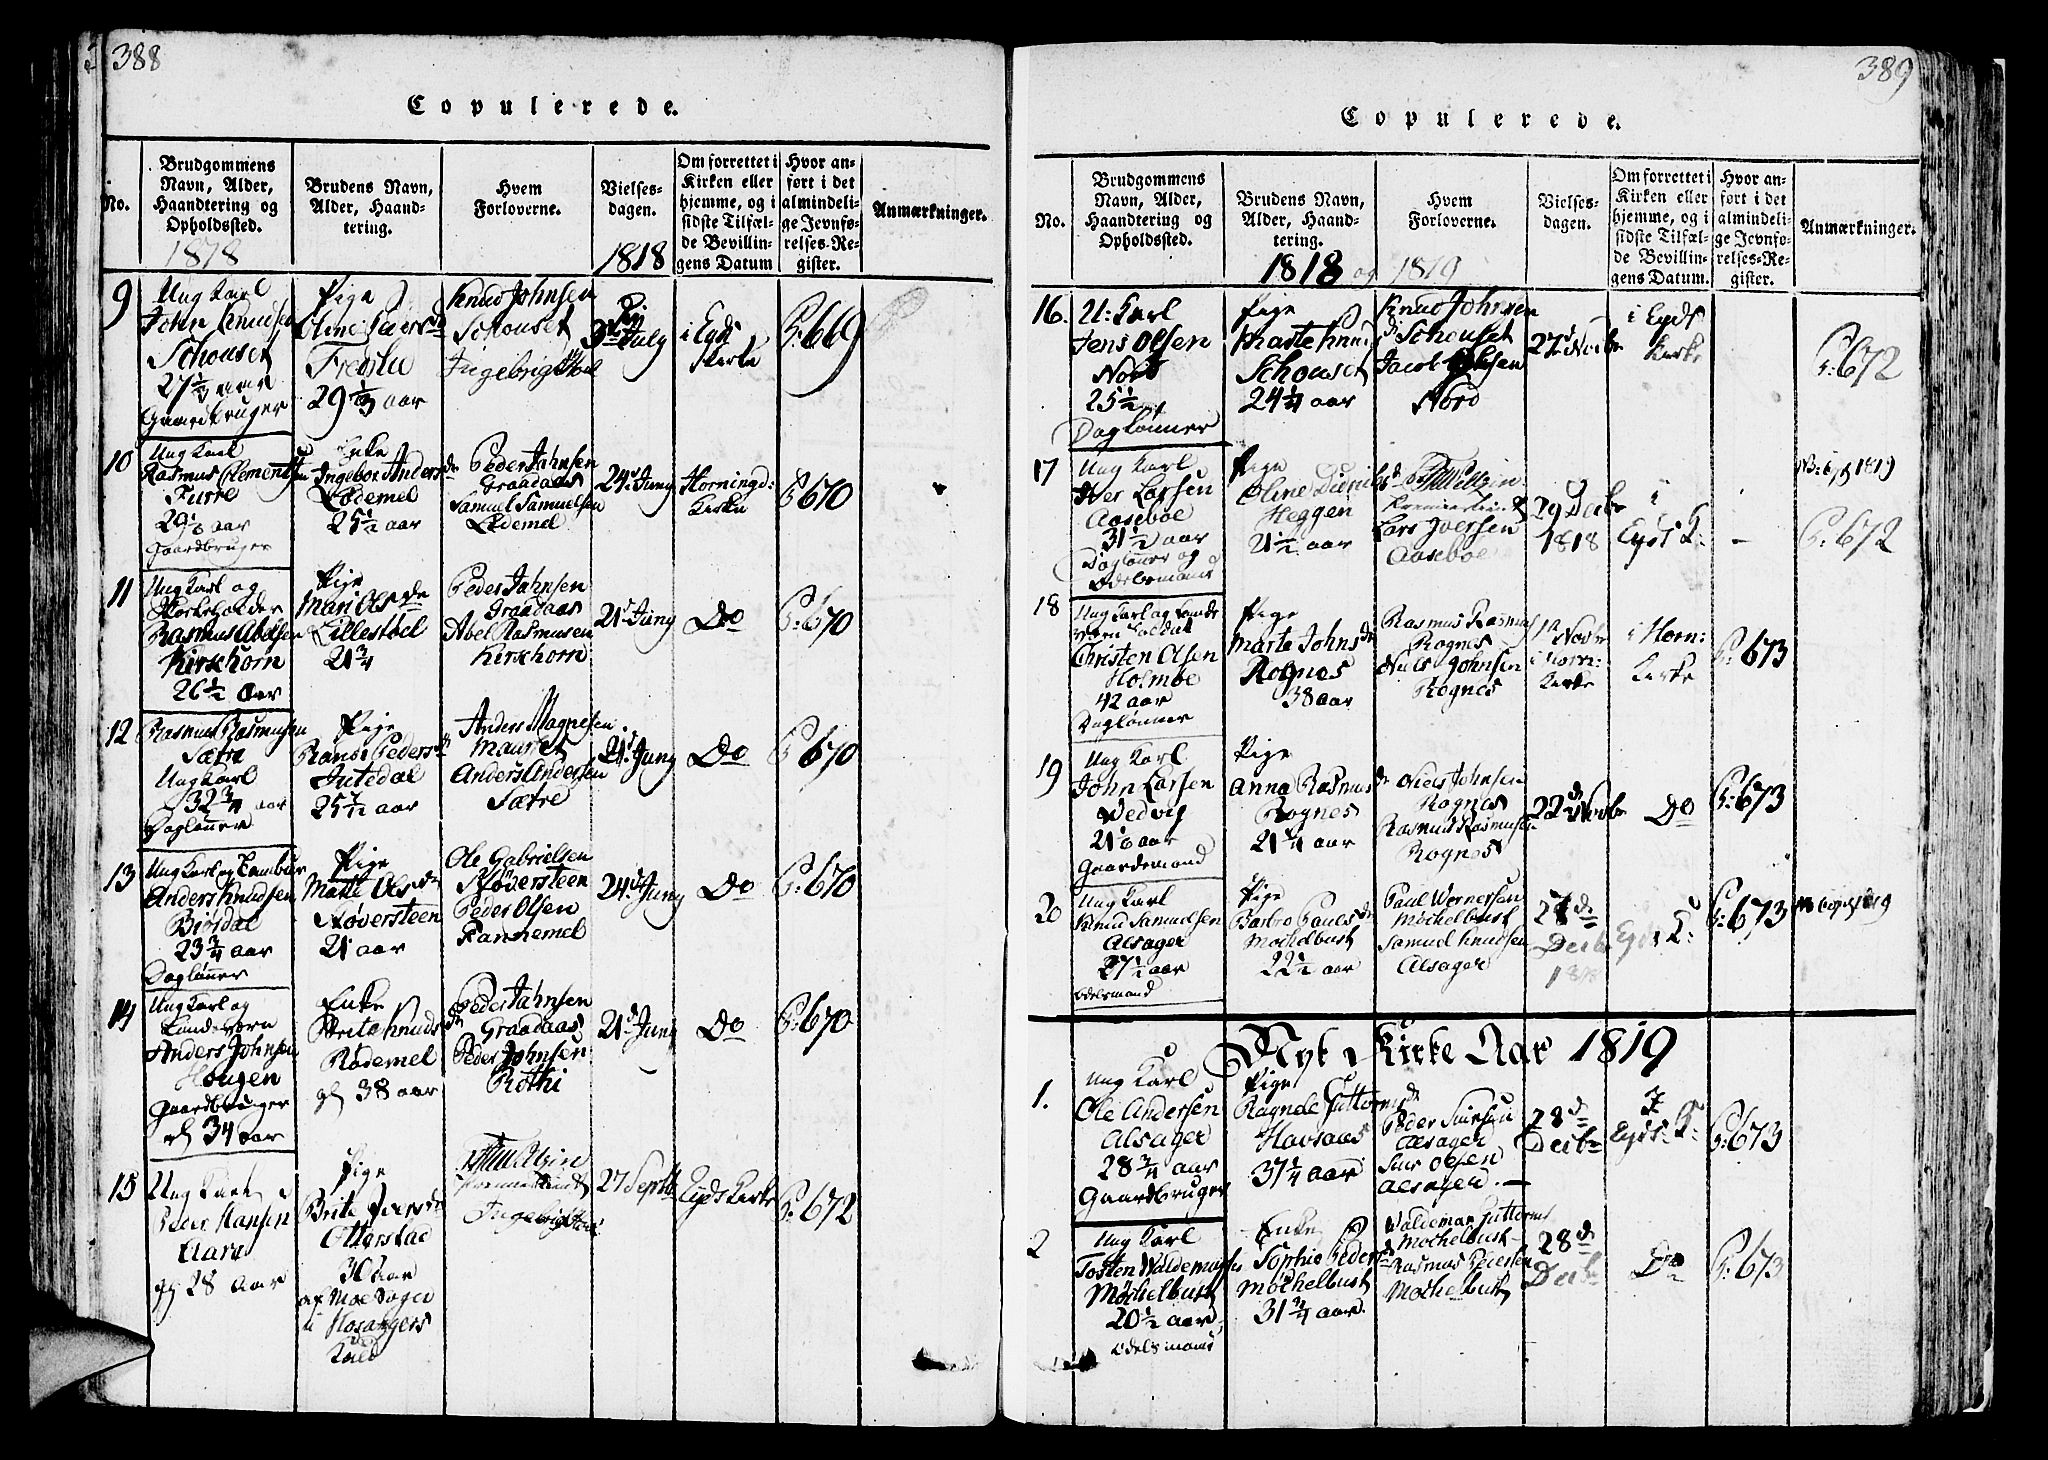 388
Copulerede.
No.
Brudgommens Navn, Alder, Haandtering og Opholdssted.
1818
Brudens Navn, Alder, Haandtering.
Hvem Forloverne.
Vielses-dagen.
1818
Om forrettet i Kirken eller hjemme, og i sidste Tilfælde Bevillingens Datum
Hvor anført i det almindelige Jevnførelses-Register.
Anmærkninger.
9
Ung Karl
John Knudsen
Schouset
27½ aar
Gaardbruger
Pige
Oline
29 aar
Knud Johnsen
Schouset
July
i Eyds
Kerke
S: 669
10
Ung Karl
Rasmus Clementsen
Furre
29 aar
Gaardbruger
Enke
Ingebor Anders dr
Lødemel
25½ aar
Peder Jahnsen
Graadaas
Samuel Samuelsen
Lødemel
24d Juny
Horningd:
Kerke
S: 670
11
Ung Karl og
Kirkeholder
Rasmus Abelsen
Kirkhorn
26½ Aar
Pige
Mari Ols dr
Lillestøl
21¾
Peder Jahnsen
Graadaas
Abel Rasmusen
Kirkhorn
21d Juny
Do
S: 670
12
Rasmus Rasmusen
Sætre
Ung Karl
32¾ aar
Daglønner
Pige
Randi Peders dr
Jutedal
25 aar
Anders Magnesen
Maurset
Anders Andersen
Sætre
21d Juny
Do
S: 670
13
Ung Karl og
Anders Knudsen
Biørdal
23¾ aar
Daglønner
Pige
Matte Ols dr
Støversteen
21 aar
Ole Gabrielsen
Støversteen
Peder Olsen
Rannemel
24d Juny
Do
S: 670
14
Ung Karl og
Landeværn
Anders Johnsen
Hougen
Gaardbruger
gl 34 aar
Enke
Brita Knuds dr
Rødemel
gl 38 aar
Peder Jahnsen
Graadaas
Peder Johnsen
Røthi
21d Juny
Do
S: 670
15
Ung Karl
Peder Hansen
Aars
gl 28 Aar
Pige
Brite Ivers dr
Otterstad
30 Aar
af Moe Sogn
i Hosangers
Kald
27 Septbr
Eyds Kerke
S: 672
389
Copulerede.
No.
Brudgommens Navn, Alder, Haandtering og Opholdssted.
Brudens Navn, Alder, Haandtering.
1818 og 1819
Hvem Forloverne.
Vielses-dagen.
Om forrettet i Kirken eller hjemme, og i sidste Tilfælde Bevillingens Datum.
Hvor anført i det almindelige Jevnførelses-Register.
Anmærkninger.
16.
U: Karl
Jens Olsen
Nord
25½
Daglønner
Pige
Marte Knuds dr
Schouset
24¼ aar
Knud Johnsen
Schouset
Jacob Olsen
Nord
27d Novbr
i Eyds
Kerke
S: 672
17
Ung Karl
Iver Larsen
Aaseboe
31½ aar
Daglønner og
Odelsmand
Pige
Oline
Heggen
21½ aar
Lars Iversen
Aaseboe
29 Decbr
1818
i
Eyds K:
1819
S: 672
18
Ung Karl og Lande
værn Soldat
Christen Olsen
Holmøe
42 aar
Daglønner
Pige
Marta Johns dr
Rognes
38 aar
Rasmus Rasmus
Rognes
Niels Johnsen
Rognes
1d Novbr
i Horn:
Kerke
i Horn:
Kerke
S: 673
19
Ung Karl
John Larsen
Wedvig
21 aar
Gaardemand
Pige
Anna Rasmus dr
Rognes
21¼ aar
Niels Johnsen
Rognes
Rasmus Rasmusen
Rognes
22d Novbr
Do
S: 673
20
Ung Karl
Knud Samuelsen
Alsager
27½ aar
Odelsmand
Pige
Barbro Pauls dr
Mochelbust
22½ aar
Paul Wernersen
Mochelbust
Samuel Knudsen
Alsager
27d
Decbr
Eyds K:
S: 673
1819
Nyt Kirke Aar 1819
1.
Ung Karl
Ole Andersen
Alsager
28¾ aar
Gaardbruger
Pige
Ragnele Guttorms dr
Havsaas
37¼ aar
Peder
Alsager
Siur Olsen
Alsager.
28d
Decbr
I
Eyds K:
S: 673
2
Ung Karl
Tosten Waldemarsen
Møchelbust
20½ aar
Odelsmand
Enke
Sophie Peders dr
Møchelbust
31¾ aar
Waldemar Guttorms
Mochelbust
Rasmus Pedersen
Mochelbust
28d
Decbr
Do
S: 673